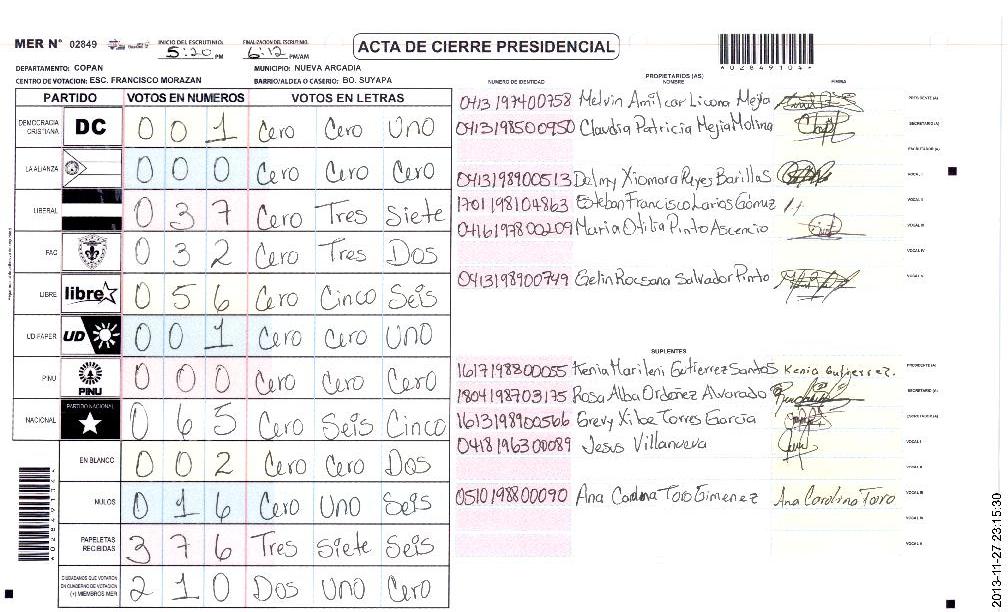 MER N° 02849
INICIO DEL ESCRUTINIO: 5:20 PM
FINALIZACION DEL ESCRUTINIO: 6:12 PM/AM
ACTA DE CIERRE PRESIDENCIAL
A02849104
DEPARTAMENTO: COPAN
MUNICIPIO: NUEVA ARCADIA
CENTRO DE VOTACION: ESC. FRANCISCO MORAZAN
BARRIO/ALDEA O CASERIO: BO. SUYAPA
PARTIDO VOTOS EN NUMEROS VOTOS EN LETRAS
DEMOCRACIA CRISTIANA DC 0 0 1 Cero Cero Uno
LA ALIANZA 0 0 0 Cero Cero Cero
LIBERAL 0 3 7 Cero Tres Siete
FAC 0 3 2 Cero Tres Dos
LIBRE libre 0 5 6 Cero Cinco Seis
UD-FAPER UD 0 0 1 Cero Cero Uno
PINU PINU 0 0 0 Cero Cero Cero
NACIONAL PARTIDO NACIONAL 0 6 5 Cero Seis Cinco
EN BLANCO 0 0 2 Cero Cero Dos
NULOS 0 1 6 Cero Uno Seis
PAPELETAS RECIBIDAS 3 7 6 Tres Siete Seis
CIUDADANOS QUE VOTARON EN CUADERNO DE VOTACION (+) MIEMBROS MER 2 1 0 Dos Uno Cero
A02849104
PROPIETARIOS (AS)
NUMERO DE IDENTIDAD NOMBRE FIRMA
0413 197400758 Melvin Amilcar Licona Mejia PRESIDENTE (A)
0413198500950 Claudia Patricia Mejia Molina SECRETARIO (A)
ESCRUTADOR (A)
0413198900513 Delmy Xiomara Reyes Barillas VOCAL I
1701198104863 Esteban Francisco Larios Gómez VOCAL II
0416197800209 Maria Otilia Pinto Ascencio VOCAL III
VOCAL IV
0413198900749 Gelin Rocsana Salvador Pinto VOCAL V
SUPLENTES
1617198800055 Kenia Marileni Gutierrez Santos Kenia Gutierrez. PRESIDENTE (A)
1804198703175 Rosa Alba Ordoñez Alvarado SECRETARIO (A)
1613198900566 Grevy Xiboe Torres García ESCRUTADOR (A)
0418196300089 Jesus Villanueva VOCAL I
VOCAL II
0510198800090 Ana Carolina Toro Gimenez Ana Carolina Toro VOCAL III
VOCAL IV
VOCAL V
2013-11-27 23:15:30